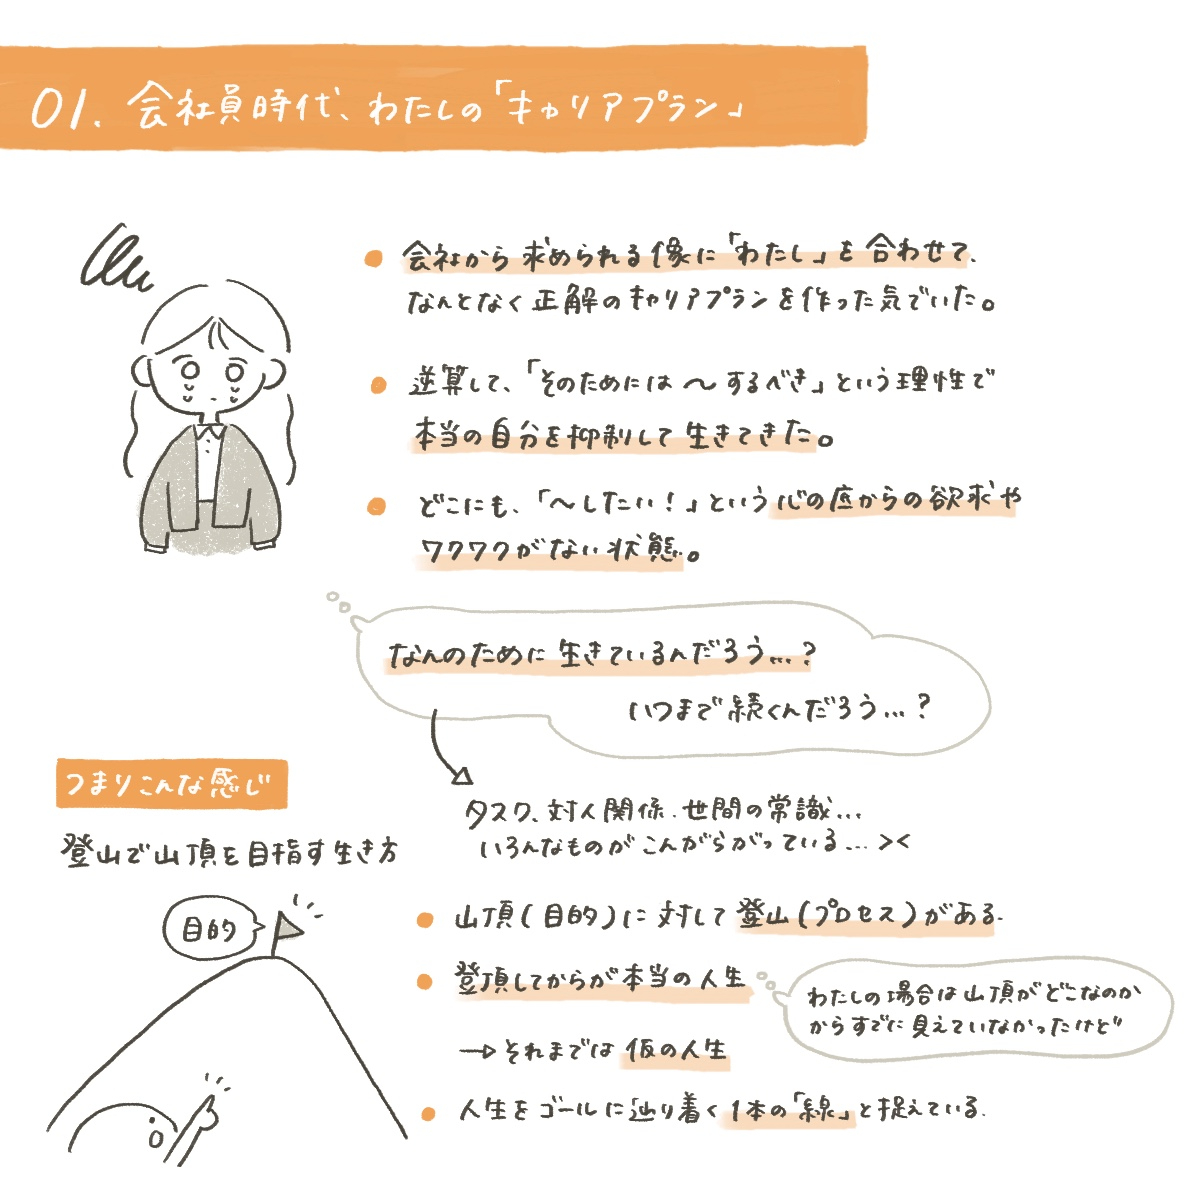 01. 会社員時代、わたしの「キャリアプラン」
会社から求められる像に「わたし」を合わせて、
なんとなく正解のキャリアプランを作った気でいた。
逆算して、「そのためには〜するべき」という理性で
本当の自分を抑制して生きてきた。
どこにも、「〜したい！」という心の底からの欲求や
ワクワクがない状態。
なんのために生きているんだろう…？
いつまで続くんだろう…？
タスク、対人関係、世間の常識…
いろんなものがこんがらがっている…＞＜
つまりこんな感じ
登山で山頂を目指す生き方
目的
山頂(目的)に対して登山(プロセス)がある.
登頂してからが本当の人生
わたしの場合は山頂がどこなのか
からすでに見えていなかったけど
→それまでは仮の人生
人生をゴールに辿り着く1本の「線」と捉えている.